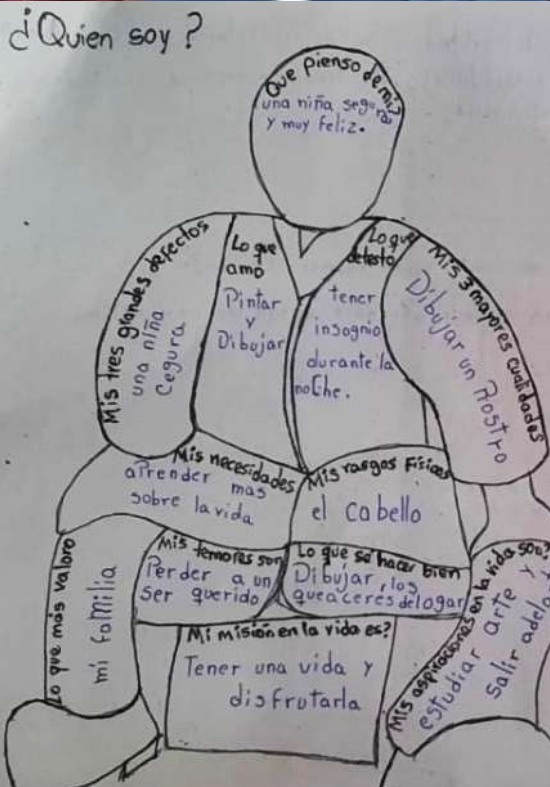 ¿Quien soy?
Que pienso de mi?
una niña segura
y muy feliz.
Mis tres grandes defectos
una niña
Cegura
Lo que
amo
Pintar
y
Dibujar
Lo que
detesto
tener
insognio
durante la
noche.
Mis 3 mayores cualidades
Dibujar un Rostro
Mis necesidades
aprender mas
sobre la vida
Mis rasgos Físicos
el cabello
Lo que más valoro
mi familia
Mis temores son
Perder a un
ser querido
Lo que se hacer bien
Dibujar, los
queaceres del ogar
Mi misión en la vida es?
Tener una vida y
disfrutarla
Mis aspiraciones en la vida son?
estudiar arte y
salir adela